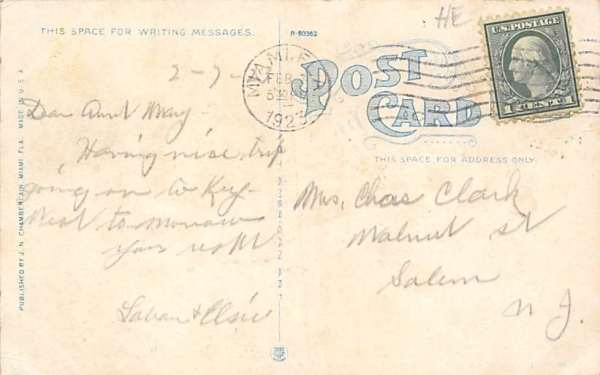 HE
THIS SPACE FOR WRITING MESSAGES.
R-80362
U.S. POSTAGE
1 CENT 1
MIAMI, FLA.
FEB
192
POST
CARD
THIS SPACE FOR ADDRESS ONLY.
2-7-
Dear Aunt Mary-
Having nice trip
going on to Key-
West to morrow
your
& Elsie
Mrs. Chas Clark
Walnut st
Salem
N J.
PUBLISHED BY J. N. CHAMBERLAIN, MIAMI, FLA. MADE IN U.S.A.